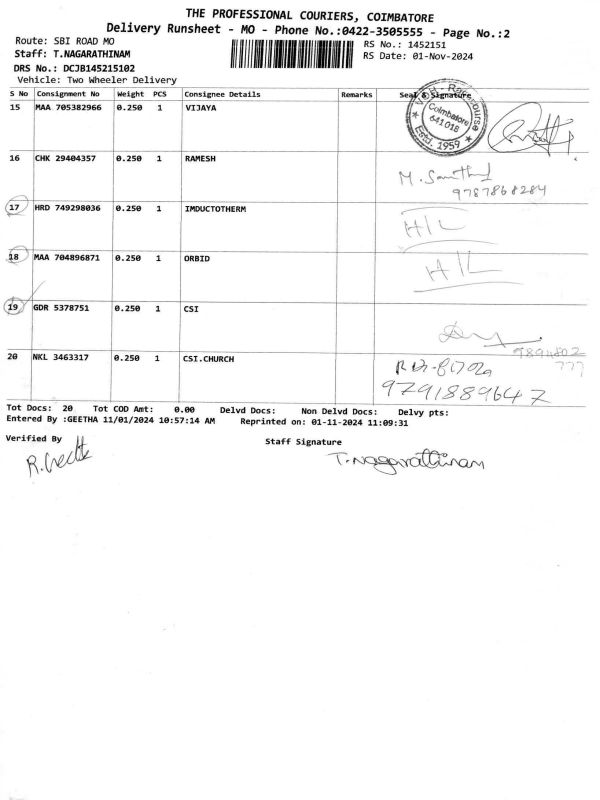 THE PROFESSIONAL COURIERS, COIMBATORE
Delivery Runsheet - MO - Phone No.:0422-3505555 - Page No.:2
Route: SBI ROAD MO
RS No.: 1452151
Staff: T.NAGARATHINAM
RS Date: 01-Nov-2024
DRS No.: DCJB145215102
Vehicle: Two Wheeler Delivery
S No Consignment No Weight PCS Consignee Details Remarks Seal & Signature
15 MAA 705382966 0.250 1 VIJAYA
Coimbatore
641 018
Estd. 1959
16 CHK 29404357 0.250 1 RAMESH
9787868284
17 HRD 749298036 0.250 1 IMDUCTOTHERM
H/L
18 MAA 704896871 0.250 1 ORBID
H/L
19 GDR 5378751 0.250 1 CSI
9894802
777
20 NKL 3463317 0.250 1 CSI.CHURCH
9791889647
Tot Docs: 20 Tot COD Amt: 0.00 Delvd Docs: Non Delvd Docs: Delvy pts:
Entered By :GEETHA 11/01/2024 10:57:14 AM Reprinted on: 01-11-2024 11:09:31
Verified By
Staff Signature
T. Nagarathinam